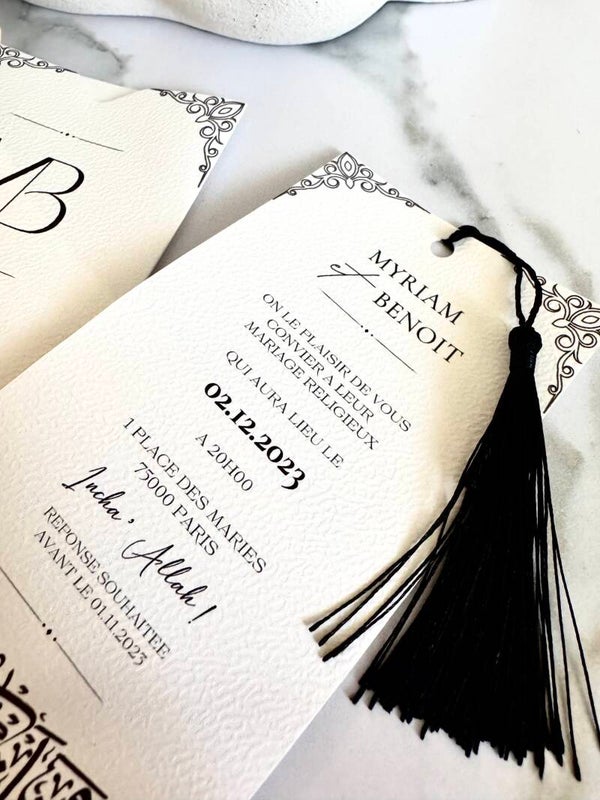 MB
MYRIAM
et
BENOIT
ON LE PLAISIR DE VOUS
CONVIER A LEUR
MARIAGE RELIGIEUX
QUI AURA LIEU LE
02.12.2023
A 20H00
1 PLACE DES MARIES
75000 PARIS
Incha,
Allah !
REPONSE SOUHAITEE
AVANT LE 01.11.2023